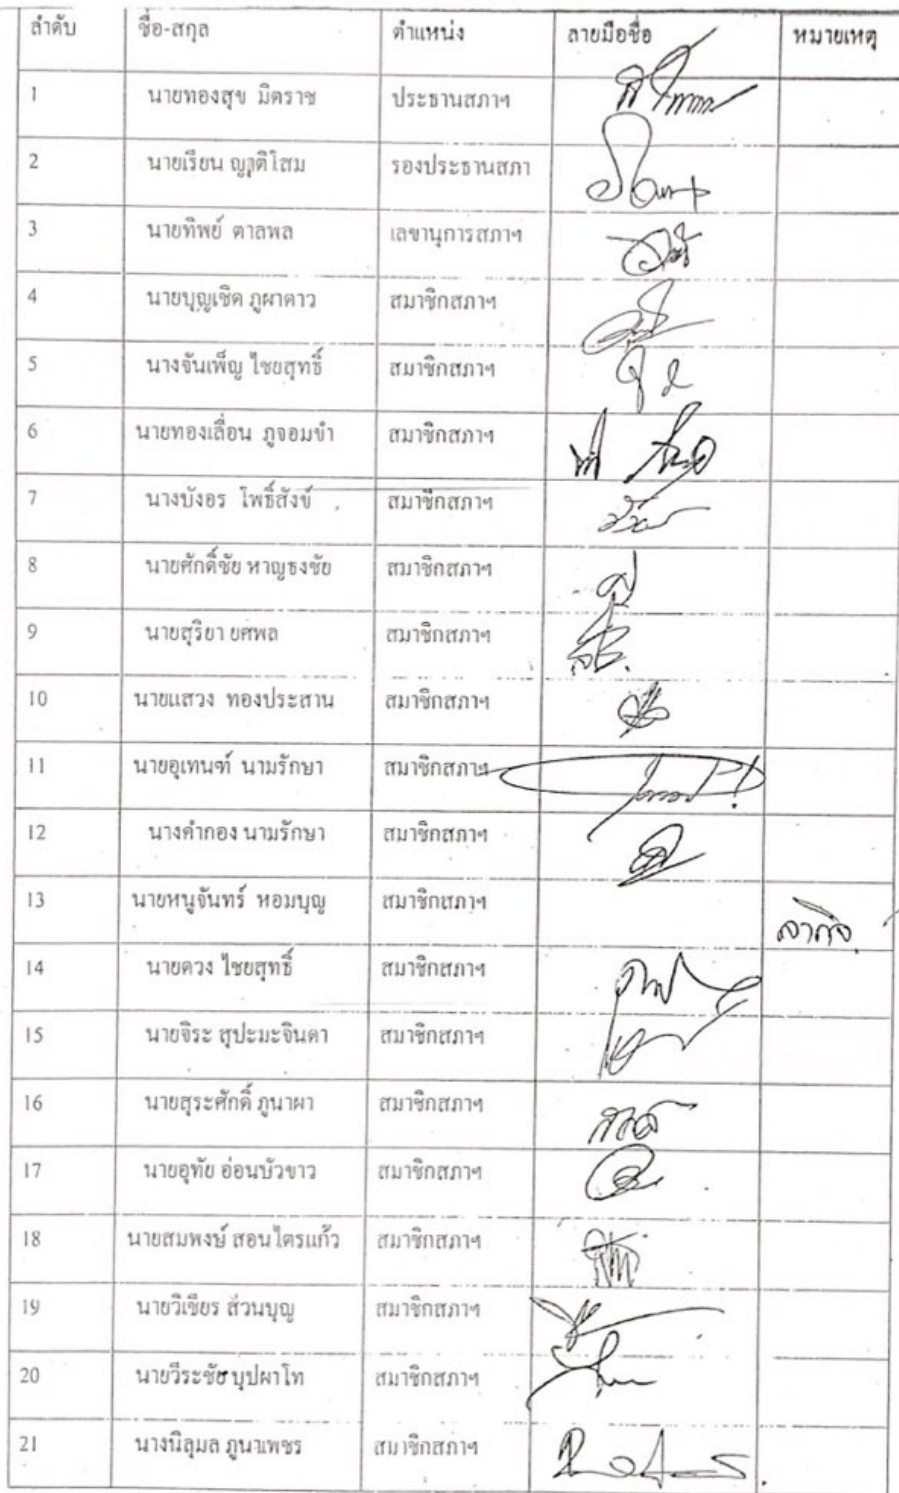 ลำดับ ชื่อ-สกุล ตำแหน่ง ลายมือชื่อ หมายเหตุ
1 นายทองสุข มิตราช ประธานสภาฯ
2 นายเรียน ญาติโสม รองประธานสภา
3 นายทิพย์ ตาลพล เลขานุการสภาฯ
4 นายบุญเชิด ภูผาดาว สมาชิกสภาฯ
5 นางจันเพ็ญ ไชยสุทธิ์ สมาชิกสภาฯ
6 นายทองเลื่อน ภูจอมขำ สมาชิกสภาฯ
7 นางบังอร โพธิ์สังข์ สมาชิกสภาฯ
8 นายศักดิ์ชัย หาญธงชัย สมาชิกสภาฯ
9 นายสุริยา ยศพล สมาชิกสภาฯ
10 นายแสวง ทองประสาน สมาชิกสภาฯ
11 นายอุเทนฑ์ นามรักษา สมาชิกสภาฯ
12 นางคำกอง นามรักษา สมาชิกสภาฯ
13 นายหนูจันทร์ หอมบุญ สมาชิกสภาฯ ลากิจ
14 นายดวง ไชยสุทธิ์ สมาชิกสภาฯ
15 นายจิระ สุปะมะจินตา สมาชิกสภาฯ
16 นายสุระศักดิ์ ภูนาผา สมาชิกสภาฯ
17 นายอุทัย อ่อนบัวขาว สมาชิกสภาฯ
18 นายสมพงษ์ สอนไตรแก้ว สมาชิกสภาฯ
19 นายวิเชียร ส่วนบุญ สมาชิกสภาฯ
20 นายวีระชัย บุปผาโท สมาชิกสภาฯ
21 นางนิลุมล ภูนาเพชร สมาชิกสภาฯ